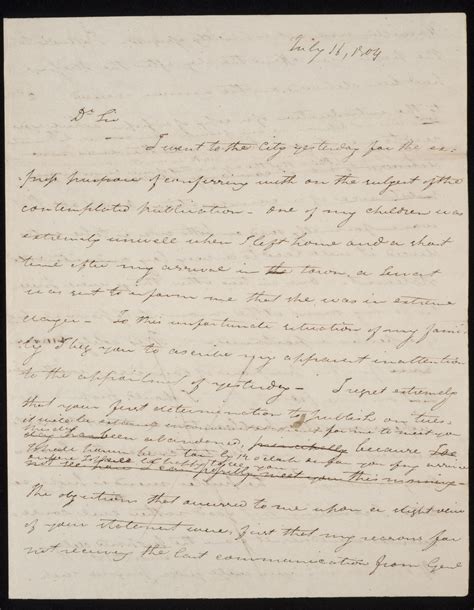 July 16, 1804
Dr Sir
I went to the City yesterday for the ex-
press purpose of conferring with on the subject of the
contemplated publication - one of my children was
extremely unwell when I left home and a short
time after my arrival in the town, a servant
was sent to inform me that she was in extreme
danger - To this unfortunate situation of my fami-
ly I beg you to ascribe my apparent inattention
to the appointment of yesterday - I regret extremely
that your first determination to publish on tues-
for me to meet you
been abandoned, because
meet you this morning -
The objections that occurred to me upon a slight view
of your statement were, first that my reasons for
not receiving the last communication from Genl